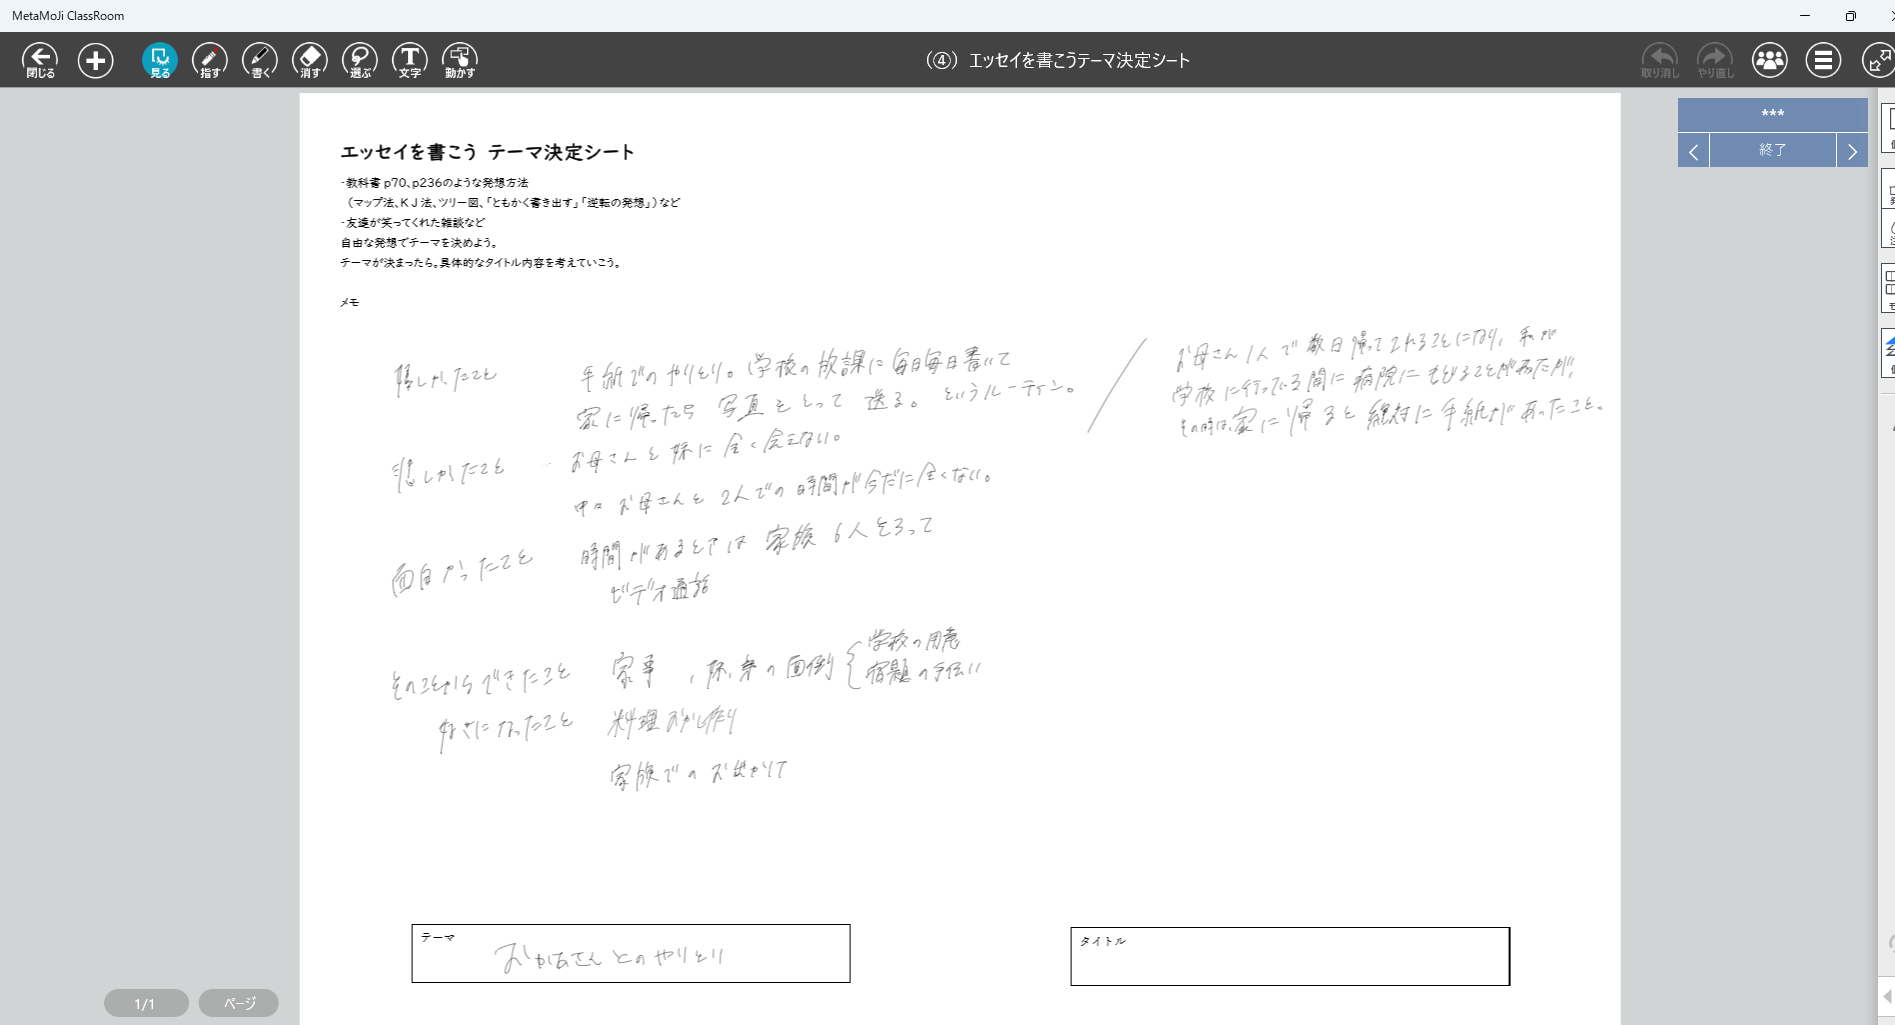 MetaMoJi ClassRoom
閉じる
見る
指す
書く
消す
選ぶ
文字
動かす
（④）エッセイを書こうテーマ決定シート
取り消し
やり直し
***
終了
エッセイを書こう テーマ決定シート
・教科書p70、p236のような発想方法
（マップ法、KJ法、ツリー図、「ともかく書き出す」「逆転の発想」）など
・友達が笑ってくれた雑談など
自由な発想でテーマを決めよう。
テーマが決まったら。具体的なタイトル内容を考えていこう。
メモ
嬉しかったこと 手紙でのやりとり。学校の放課に毎日毎日書いて
家に帰ったら 写真をとって 送る。というルーティン。
お母さん1人で数日帰ってこれることになり、私が
学校に行っている間に病院にもどることがあったが、
その時は、家に帰ると絶対に手紙があったこと。
悲しかったこと お母さんと妹に全く会えない。
中々 お母さんと 2人での時間が今だに全くない。
面白かったこと 時間があるときは 家族 6人そろって
ビデオ通話
そのことからできたこと 家事、妹、弟の面倒
学校の用意
宿題の手伝い
好きになったこと 料理 おかし作り
家族での お出かけ
テーマ
おかあさんとのやりとり
タイトル
1/1
ページ